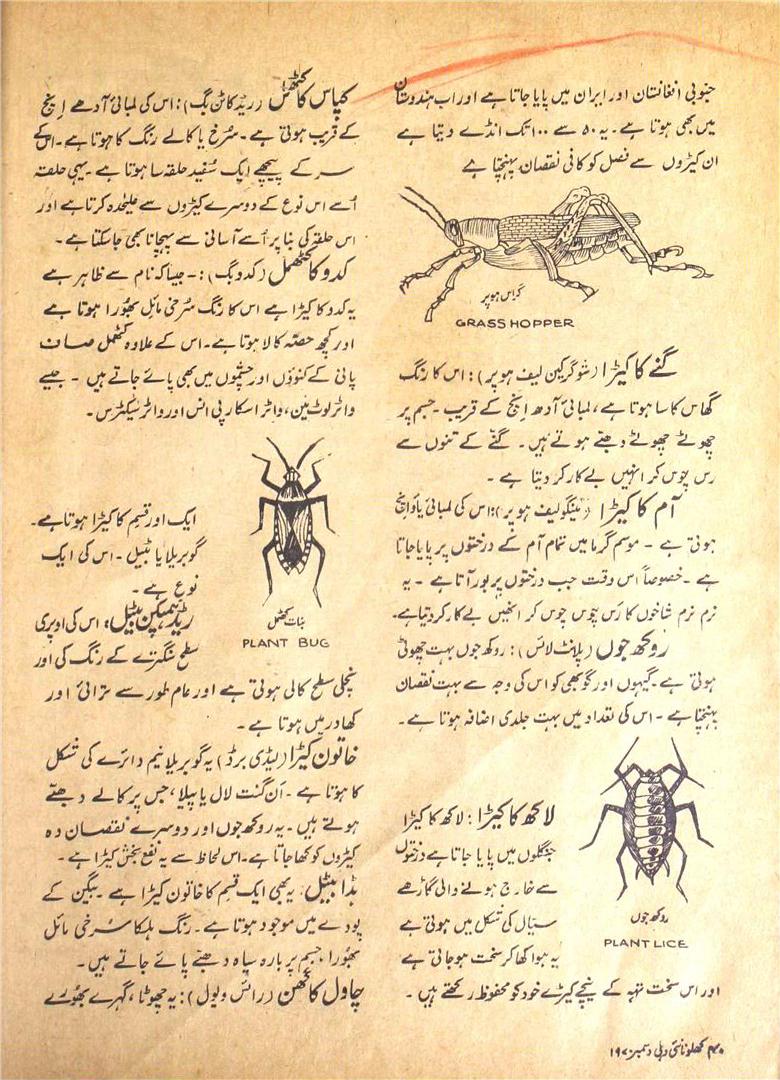 جنوبی افغانستان اور ایران میں پایا جاتا ہے اور اب ہندوستان
میں بھی ہوتا ہے۔ یہ ۵۰ سے ۱۰۰ تک انڈے دیتا ہے
ان کیڑوں سے فصل کو کافی نقصان پہنچتا ہے
گراس ہوپر
GRASS HOPPER
گنے کا کیڑا (شوگر کین لیف ہوپر): اس کا رنگ
گھاس کا سا ہوتا ہے، لمبائی آدھ اِنچ کے قریب۔ جسم پر
چھوٹے چھوٹے دھبّے ہوتے ہیں۔ گنّے کے تنوں سے
رس چوس کر انہیں بے کار کر دیتا ہے۔
آم کا کیڑا (مینگو لیف ہوپر): اس کی لمبائی پاؤ اِنچ
ہوتی ہے۔ موسم گرما میں تمام آم کے درختوں پر پایا جاتا
ہے۔ خصوصاً اس وقت جب درختوں پر بور آتا ہے۔ یہ
نرم نرم شاخوں کا رس چوس چوس کر انھیں بے کار کر دیتا ہے۔
روکھ جوں (پلانٹ لائس): روکھ جوں بہت چھوٹی
ہوتی ہے۔ گیہوں اور گوبھی کو اس کی وجہ سے بہت نقصان
پہنچتا ہے۔ اس کی تعداد میں بہت جلدی اضافہ ہوتا ہے۔
لاکھ کا کیڑا: لاکھ کا کیڑا
جنگلوں میں پایا جاتا ہے درختوں
سے خارج ہونے والی گاڑھے
سیّال کی شکل میں ہوتی ہے
یہ ہوا کھا کر سخت ہو جاتی ہے
اور اس سخت تہہ کے نیچے کیڑے خود کو محفوظ رکھتے ہیں۔
روکھ جوں
PLANT LICE
کپاس کا کٹھمل (ریڈ کاٹن بگ): اس کی لمبائی آدھے اِنچ
کے قریب ہوتی ہے۔ سُرخ یا کالے رنگ کا ہوتا ہے۔ اس کے
سر کے پیچھے ایک سُفید حلقہ سا ہوتا ہے۔ یہی حلقہ
اُسے اس نوع کے دوسرے کیڑوں سے علیٰحدہ کرتا ہے اور
اس حلقہ کی بنا پر اُسے آسانی سے پہچانا بھی جا سکتا ہے۔
کدو کا کٹھمل (کدو بگ):۔ جیسا کہ نام سے ظاہر ہے
یہ کدو کا کیڑا ہے اس کا رنگ سُرخی مائل بھُورا ہوتا ہے
اور کچھ حصّہ کالا ہوتا ہے۔ اس کے علاوہ کٹھمل صاف
پانی کے کنوؤں اور چشموں میں بھی پائے جاتے ہیں۔ جیسے
واٹر بوٹ مین، واٹر اسکارپی انس اور واٹر سٹیکٹرس۔
ایک اور قسم کا کیڑا ہوتا ہے۔
گوبریلا یا بیٹیل۔ اس کی ایک
نوع ہے۔
ریڈ پمپکن بیٹیل: اس کی اوپری
سطح سنگترے کے رنگ کی اور
نچلی سطح کالی ہوتی ہے اور عام طور سے ترائی اور
کھادر میں ہوتا ہے۔
نبات کٹھمل
PLANT BUG
خاتون کیڑا (لیڈی برڈ) یہ گوبریلا نیم دائرے کی شکل
کا ہوتا ہے۔ اَن گنت لال یا پیلا، جس پر کالے دھبّے
ہوتے ہیں۔ یہ روکھ جوں اور دوسرے نقصان دہ
کیڑوں کو کھا جاتا ہے۔ اس لحاظ سے یہ نفع بخش کیڑا ہے۔
ہڈا بیٹیل: یہ بھی ایک قسم کا خاتون کیڑا ہے۔ بیگن کے
پودے میں موجود ہوتا ہے۔ رنگ ہلکا سُرخی مائل
بھُورا، جسم پر بارہ سیاہ دھبّے پائے جاتے ہیں۔
چاول کا گھُن (رائس ویول): یہ چھوٹا، گہرے بھُورے
۴۰ کھلونا نئی دہلی دسمبر ۱۹۷۰